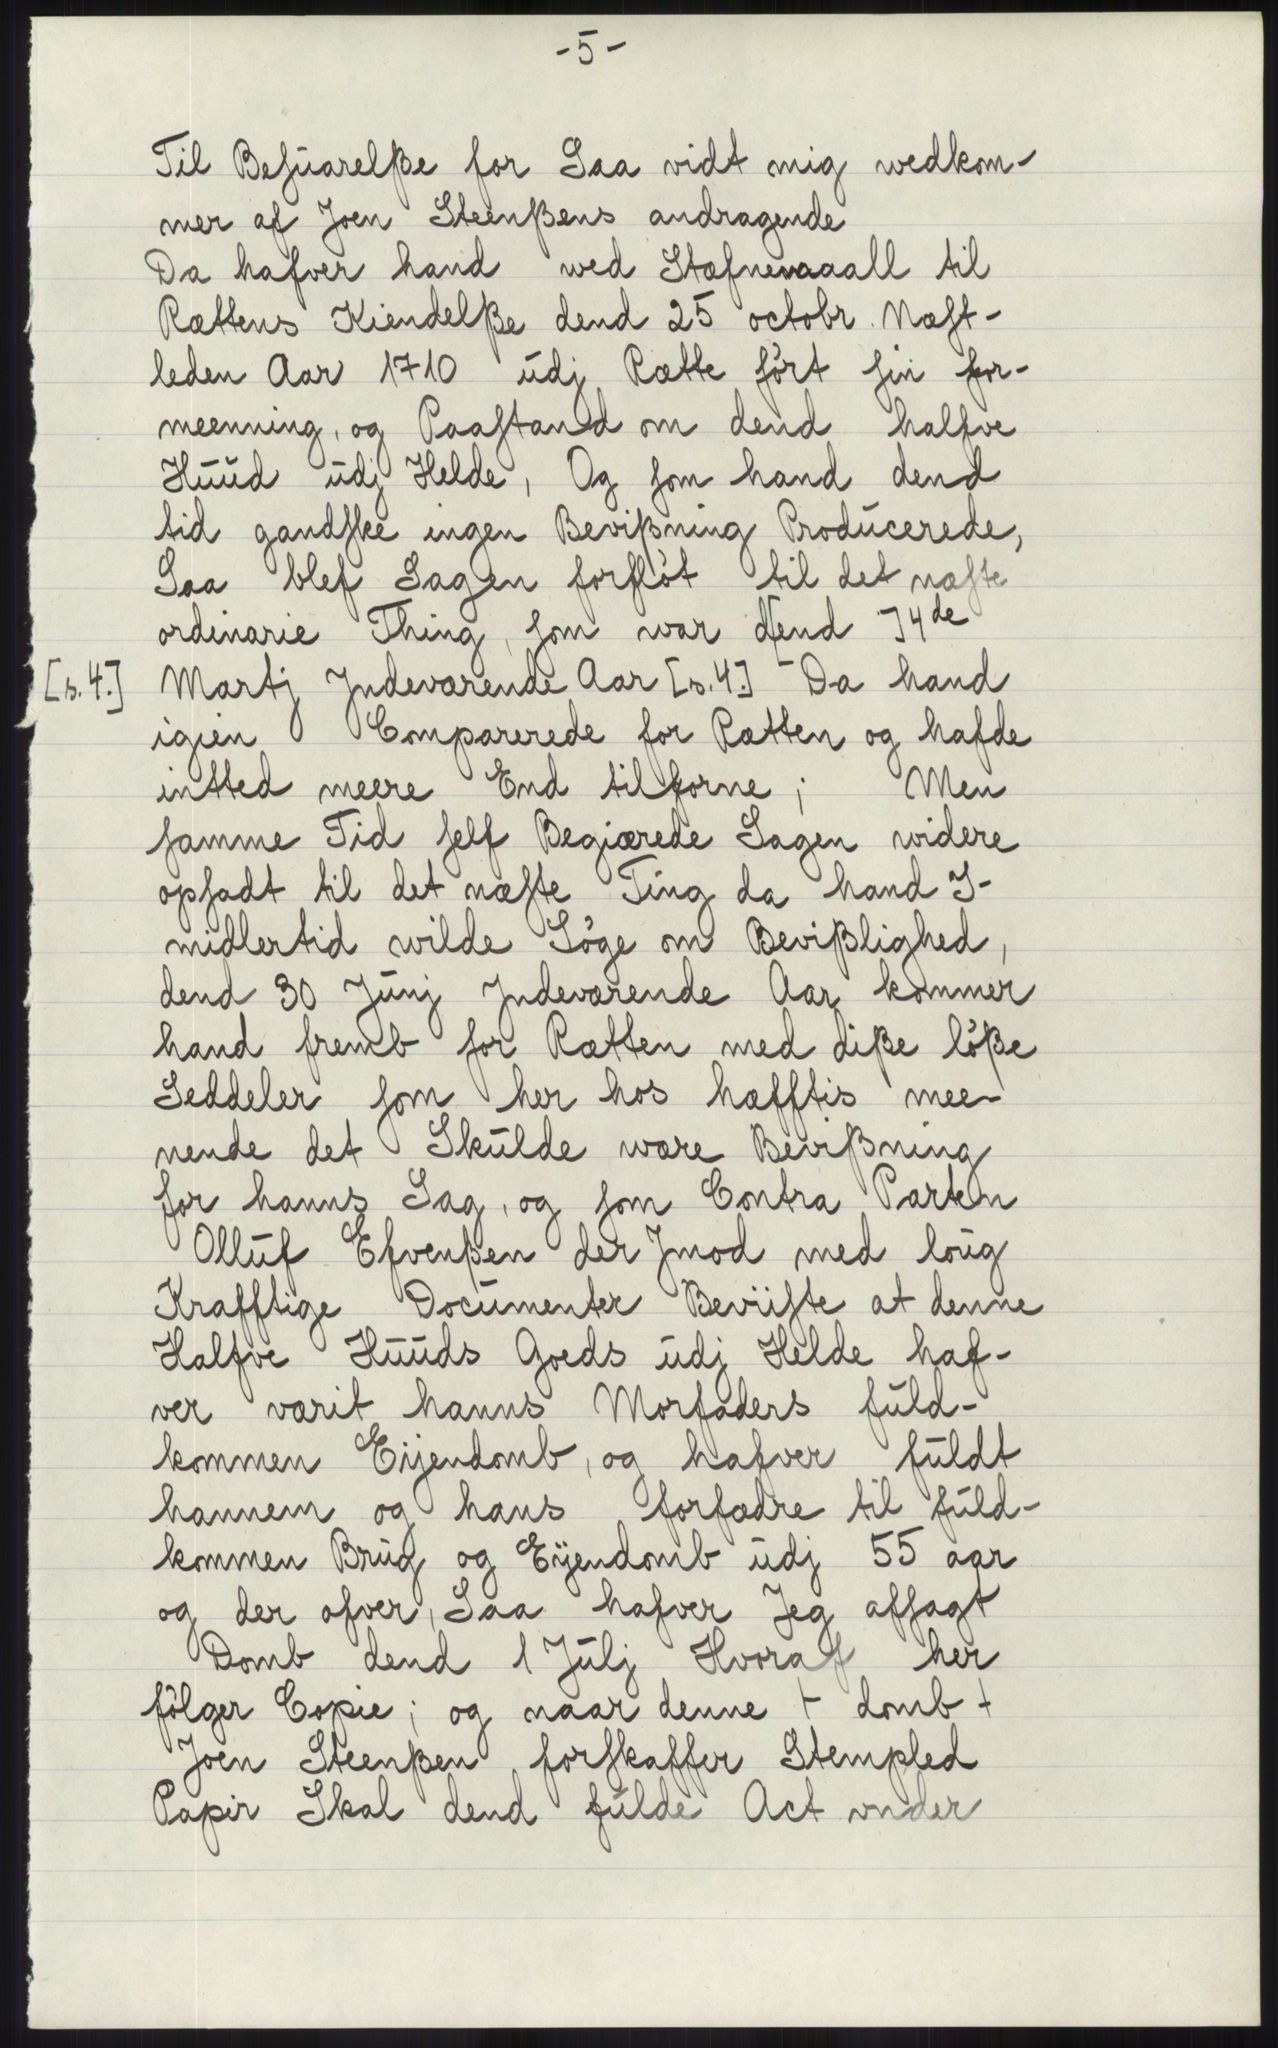 -5-
Til Besuarelße for Saa vidt mig wedkom-
mer af Joen Steenßens andragende
Da hafver hand wed Stæfnemaall til
Rættens Kiendelße dend 25 octobr. Næst-
leden Aar 1710 udj Rætte ført sin for-
meenning, og Paastand om dend halfve
Huud udj Helde, Og som hand dend
tid gandske ingen Bevißning Producerede,
Saa blef Sagen forfløt til det næste
ordinarie Thing, som war dend 14de
[s.4.] Martj Jndeværende Aar [s.4.] Da hand
igien Comparerede for Rætten og hafde
intted meere End tilforne; Men
samme Tid self Begiærede Sagen widere
opsadt til det næste Ting da hand I-
midlertid wilde Søge om Bevißlighed,
dend 30 Junj Jndeværende Aar kommer
hand fremb for Rætten med diße løße
Seddeler som her hos hæfftis mee-
nende det Skulde wære Bevißning
for hanns Sag, og som Contra Parten
Olluf Efvenßen der Jmod med loug
Krafftige Documenter Beviiste at denne
Halfve Huuds Goeds udj Helde haf-
ver værit hanns Morfaders fuld-
kommen Eijendomb, og hafver fuldt
hannem og hans forfædre til fuld-
kommen Brug og Eijendomb udj 55 aar
og der ofver, Saa hafver Jeg afsagt
Domb dend 1 Julj Hvoraf her
følger Copie; og naar denne + domb +
Joen Steenßen forskaffer Stempled
Papir Skal dend fulde Act under